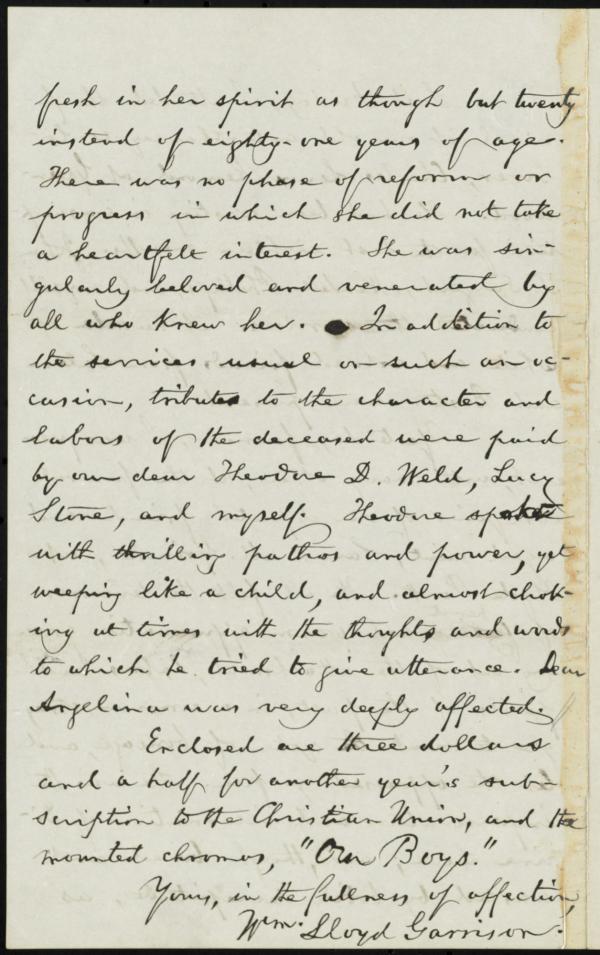 fresh in her spirit as though but twenty
instead of eighty-one years of age.
There was no phase of reform or
progress in which she did not take
a heartfelt interest. She was sin-
gularly beloved and venerated by
all who knew her. In addition to
the services usual on such an oc-
casion, tributes to the character and
labors of the deceased were paid
by our dear Theodore D. Weld, Lucy
Stone, and myself. Theodore spoke
with thrilling pathos and power, yet
weeping like a child, and almost chok-
ing at times with the thoughts and words
to which he tried to give utterance. Dear
Angelina was very deeply affected.
Enclosed are three dollars
and a half for another year's sub-
scription to the Christian Union, and the
mounted chromos, "Our Boys."
Yours, in the fullness of affection,
Wm. Lloyd Garrison.